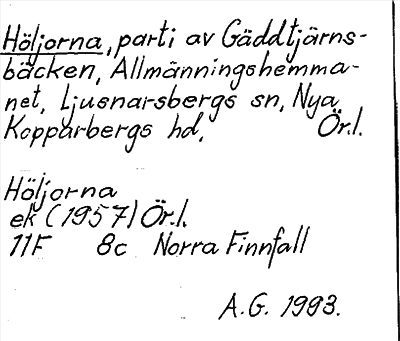 Höljorna, parti av Gäddtjärns-
bäcken, Allmänningshemma-
net, Ljusnarsbergs sn, Nya
Kopparbergs hd, Ör.l.
Höljorna
ek (1957) Ör.l.
11F 8c Norra Finnfall
A.G. 1993.